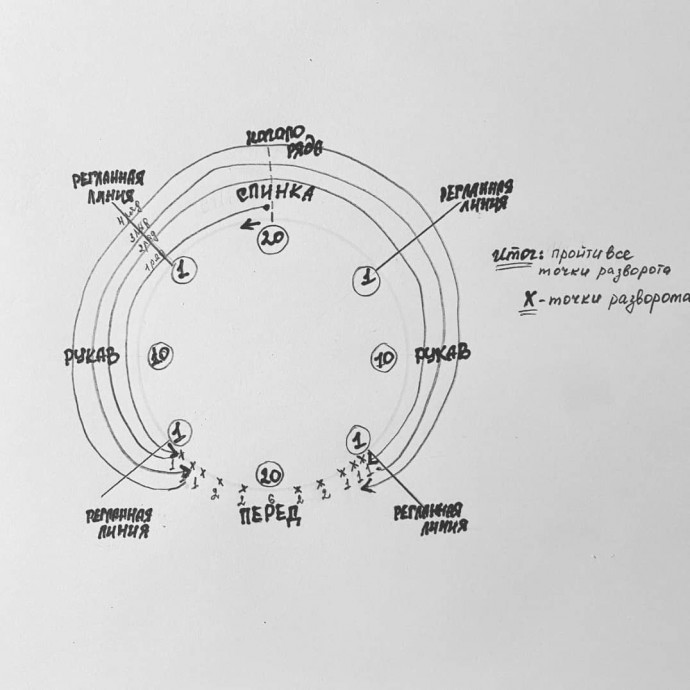 начало
ряда
РЕГЛАННАЯ
ЛИНИЯ
СПИНКА
РЕГЛАННАЯ
ЛИНИЯ
4 ряд
3 ряд
2 ряд
1 ряд
20
1
1
Итог: пройти все
точки разворота
X - точки разворота
РУКАВ
10
10
РУКАВ
1
1
20
1
1
2
2
6
2
2
1
1
1
ПЕРЕД
РЕГЛАННАЯ
ЛИНИЯ
РЕГЛАННАЯ
ЛИНИЯ